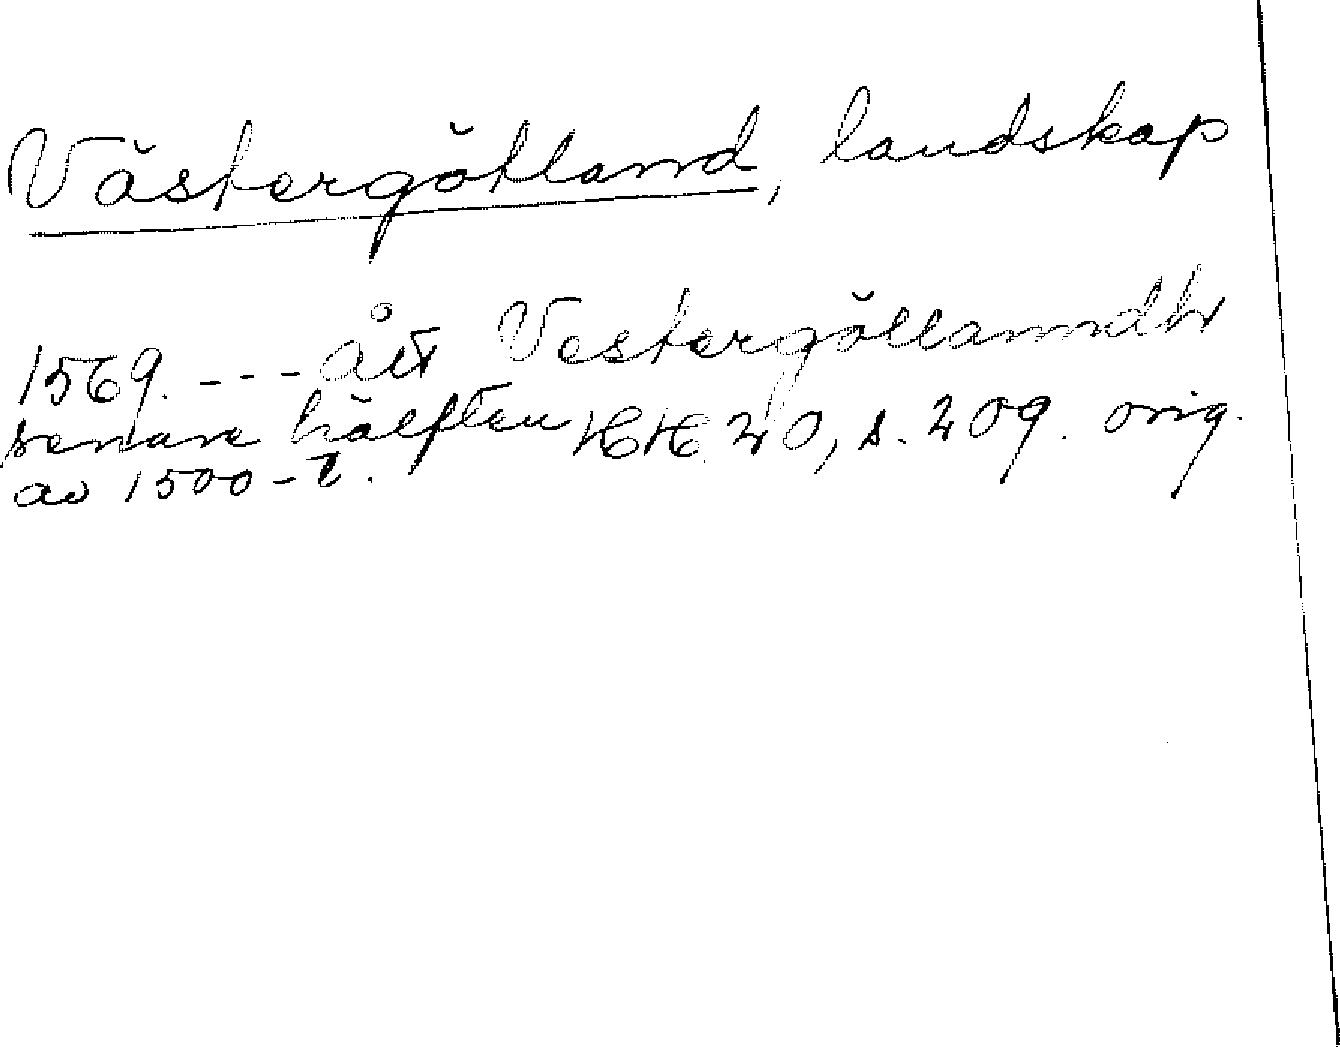 Västergötland, landskap
1569. --- ått Vestergöllanndtt
senare hälften HH 20, s. 209. orig.
av 1500-t.